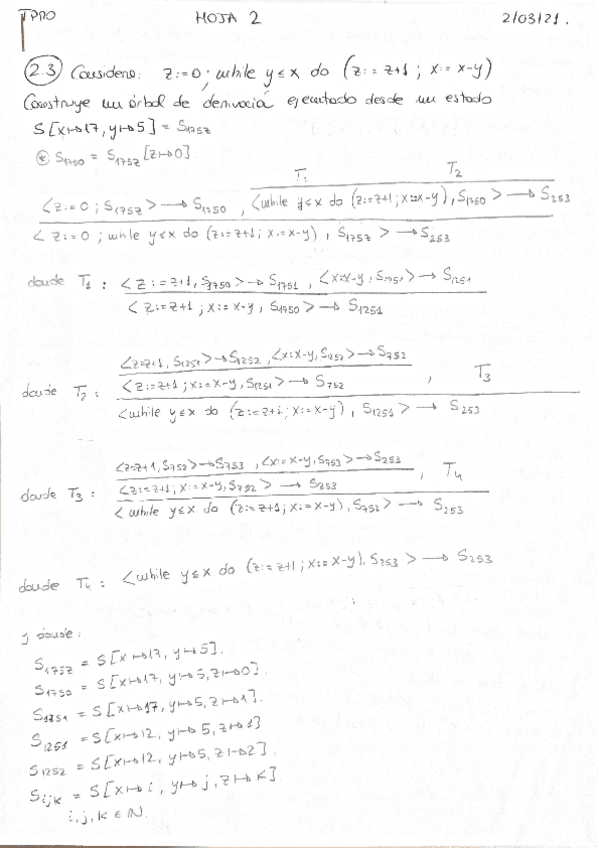 TPRO HOJA 2 2/03/21.
2.3 Considere: z:=0; while y≤x do (z:=z+1; x:=x-y)
Construye un árbol de derivación ejecutado desde un estado
S[x↦17, y↦5] = S₁₇₅z
⊛ S₁₇₅₀ = S₁₇₅z [z↦0]
T₁ T₂
<z:=0; S₁₇₅z> → S₁₇₅₀ , <while y≤x do (z:=z+1; x:=x-y), S₁₇₅₀> → S₂₅₃
<z:=0; while y≤x do (z:=z+1; x:=x-y), S₁₇₅z> → S₂₅₃
donde T₁ : <z:=z+1, S₁₇₅₀> → S₁₇₅₁ , <x:=x-y, S₁₇₅₁> → S₁₂₅₁
<z:=z+1; x:=x-y, S₁₇₅₀> → S₁₂₅₁
<z:=z+1, S₁₂₅₁> → S₁₂₅₂, <x:=x-y, S₁₂₅₂> → S₇₅₂
<z:=z+1; x:=x-y, S₁₂₅₁> → S₇₅₂ , T₃
donde T₂ :
<while y≤x do (z:=z+1; x:=x-y), S₁₂₅₁> → S₂₅₃
<z:=z+1, S₇₅₂> → S₇₅₃ , <x:=x-y, S₇₅₃> → S₂₅₃
<z:=z+1; x:=x-y, S₇₅₂> → S₂₅₃ , T₄
donde T₃ :
<while y≤x do (z:=z+1; x:=x-y), S₇₅₂> → S₂₅₃
donde T₄ : <while y≤x do (z:=z+1; x:=x-y), S₂₅₃> → S₂₅₃
y donde:
S₁₇₅z = S[x↦17, y↦5].
S₁₇₅₀ = S[x↦17, y↦5, z↦0].
S₁₇₅₁ = S[x↦17, y↦5, z↦1].
S₁₂₅₁ = S[x↦12, y↦5, z↦1]
S₁₂₅₂ = S[x↦12, y↦5, z↦2].
Sᵢⱼₖ = S[x↦i, y↦j, z↦k].
i,j,k ∈ N.